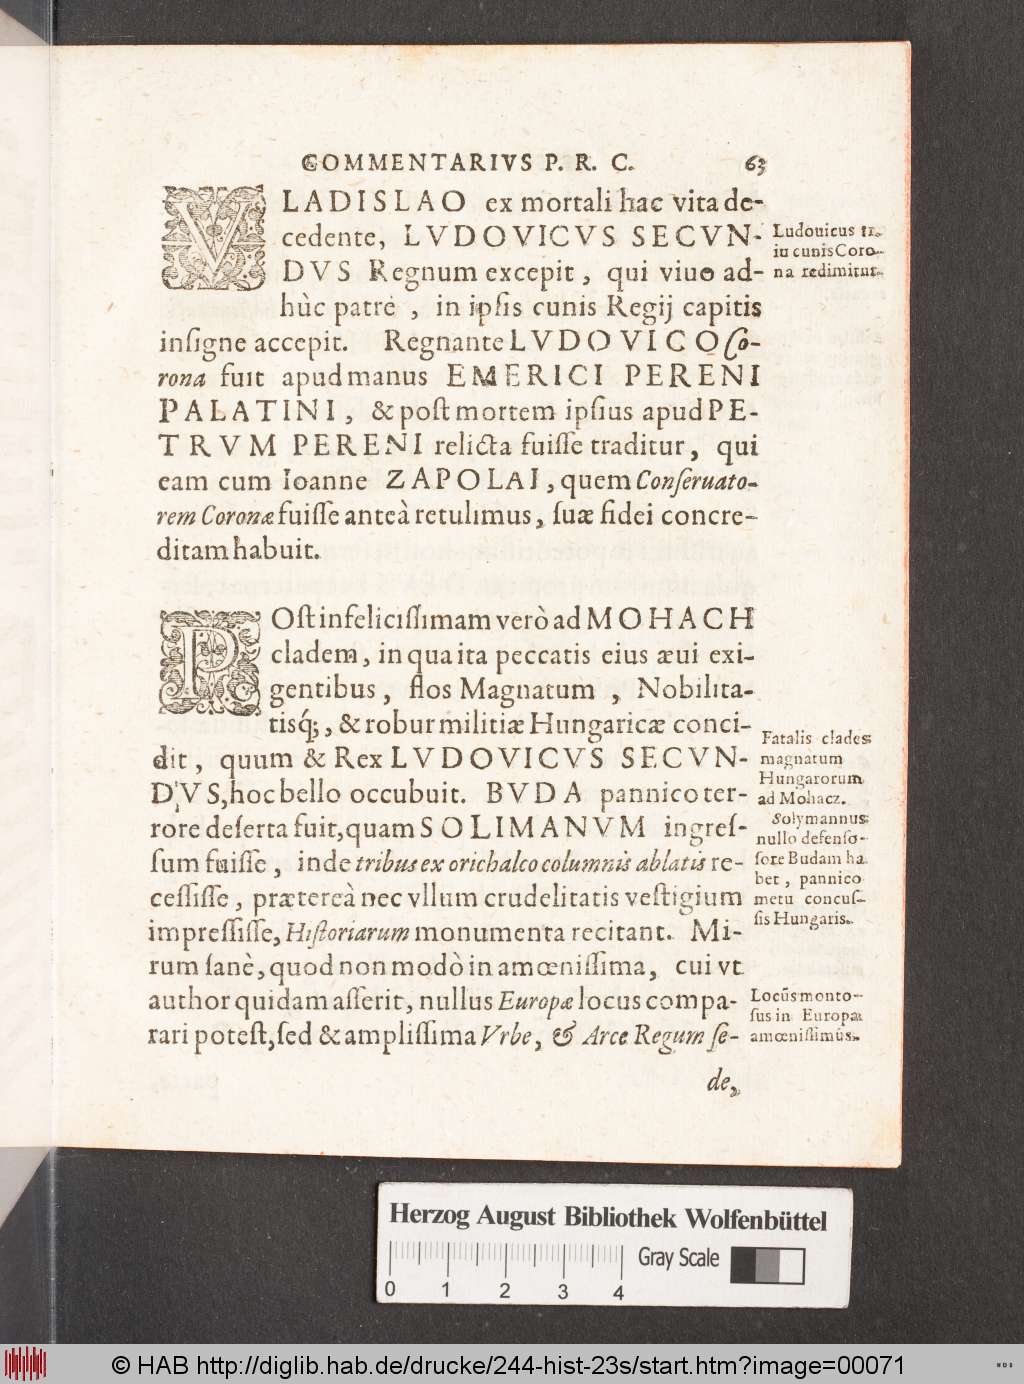 COMMENTARIVS P. R. C. 63
VLADISLAO ex mortali hac vita de-
cedente, LVDOVICVS SECVN-
DVS Regnum excepit, qui viuo ad-
hùc patre, in ipſis cunis Regij capitis
inſigne accepit. Regnante LVDOVICO Co-
rona fuit apud manus EMERICI PERENI
PALATINI, & poſt mortem ipſius apud PE-
TRVM PERENI relicta fuiſſe traditur, qui
eam cum Ioanne ZAPOLAI, quem Conſeruato-
rem Coronæ fuiſſe anteà retulimus, ſuæ fidei concre-
ditam habuit.
Ludouicus II.
in cunis Coro-
na redimitur.
POſt infeliciſſimam verò ad MOHACH
cladem, in qua ita peccatis eius æui exi-
gentibus, flos Magnatum, Nobilita-
tisq́;, & robur militiæ Hungaricæ conci-
dit, quum & Rex LVDOVICVS SECVN-
DVS, hoc bello occubuit. BVDA pannico ter-
rore deſerta fuit, quam SOLIMANVM ingreſ-
ſum fuiſſe, inde tribus ex orichalco columnis ablatis re-
ceſſiſſe, prætereà nec vllum crudelitatis veſtigium
impreſſiſſe, Hiſtoriarum monumenta recitant. Mi-
rum ſanè, quod non modò in amœniſſima, cui vt
author quidam aſſerit, nullus Europæ locus compa-
rari poteſt, ſed & ampliſſima Vrbe, & Arce Regum ſe-
de,
Fatalis clades
magnatum
Hungarorum
ad Mohacz.
Solymannus
nullo defenſo-
ſore Budam ha
bet, pannico
metu concuſ-
ſis Hungaris.
Locũs monto-
ſus in Europa
amœniſſimũs.
Herzog August Bibliothek Wolfenbüttel
Gray Scale
0 1 2 3 4
© HAB http://diglib.hab.de/drucke/244-hist-23s/start.htm?image=00071